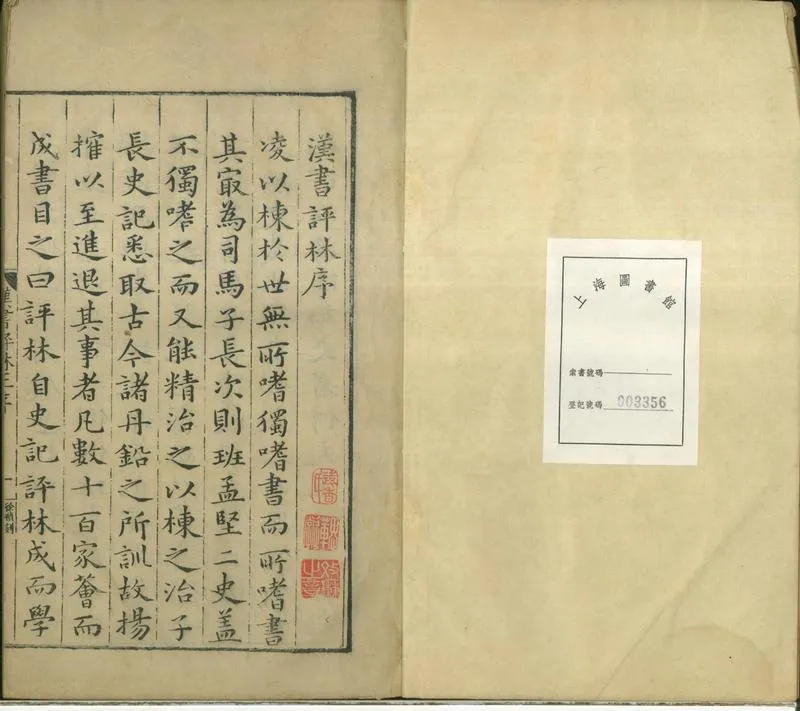 漢書評林序
凌以棟於世無所嗜獨嗜書而所嗜書
其㝡為司馬子長次則班孟堅二史蓋
不獨嗜之而又能精治之以棟之治子
長史記悉取古今諸丹鉛之所訓故揚
搉以至進退其事者凡數十百家薈而
成書目之曰評林自史記評林成而學
漢書評林王序
上海圖書館
索書號碼
登記號碼 903356